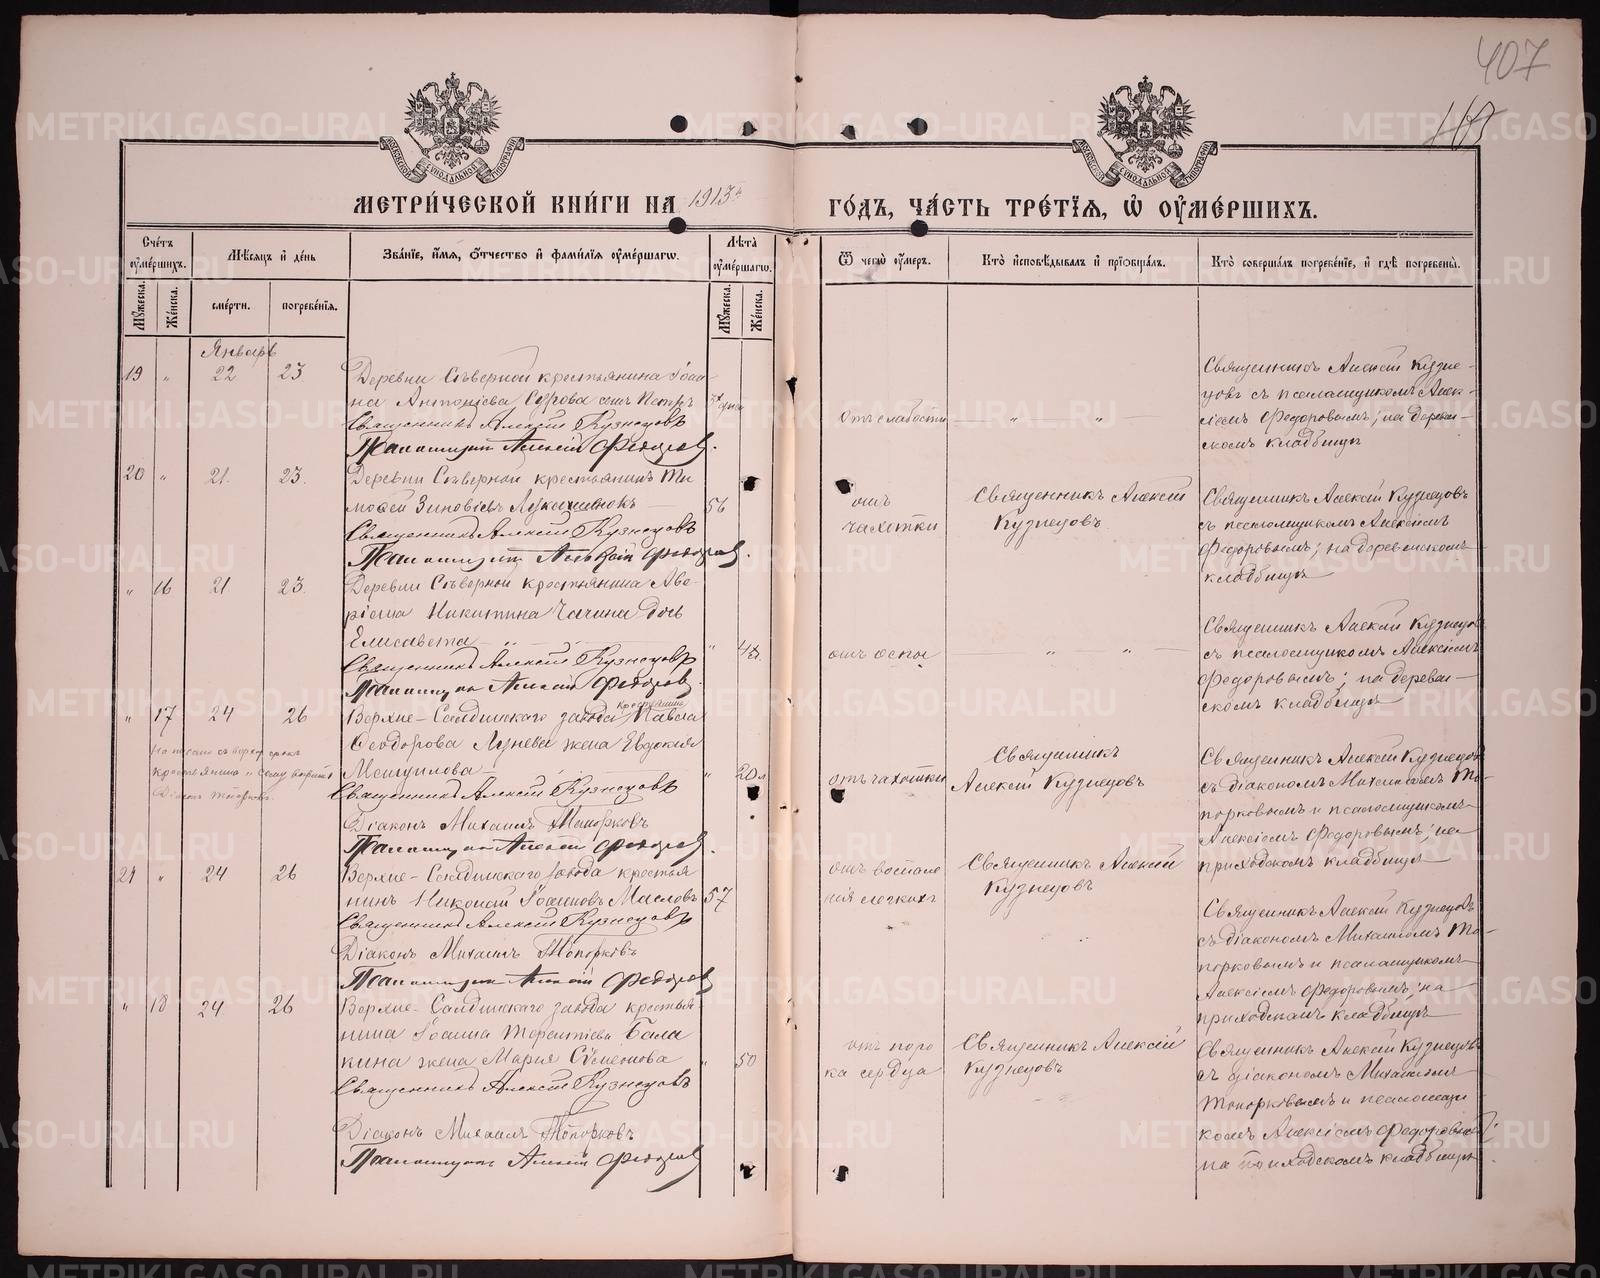 407
МЕТРИ́ЧЕСКОЙ КНИ́ГИ НА 1913й
ГО́ДЪ, ЧА́СТЬ ТРЕ́ТІѦ, Ѡ ОУ҆МЕ́РШИХЪ.
Сче́тъ оумершихъ.
Мѣсяцъ и день
Зва́нїе, и҆́мѧ, ѻ҆́тчество и҆ фами́лїѧ оу҆ме́ршагѡ.
Лѣта̀ оу҆ме́ршагѡ.
Ѿ чегѡ̀ оу҆́меръ.
Кто̀ и҆сповѣ́дывалъ и҆ прїѡбща́лъ.
Кто̀ соверша́лъ погребе́нїе, и҆ гдѣ̀ погребены̀.
Мꙋ́жеска.
Же́нска.
сме́рти.
погребе́нїѧ.
Мꙋ́жеска.
Же́нска.
Январь
19 " 22 23
Деревни Сѣверной крестьянина Іоан-
на Антоніева сынъ Петръ
дня
Священникъ Алексій Кузнецовъ
Псаломщикъ Алексій Федоровъ.
отъ слабости
" "
Священникъ Алексій Кузне-
цовъ съ псаломщикомъ Алек-
сіемъ Федоровымъ; на деревен-
скомъ кладбищѣ
20 " 21. 23.
Деревни Сѣверной крестьянинъ Ти-
моѳей Зиновіевъ
56
Священникъ Алексій Кузнецовъ
Псаломщикъ Алексій Федоровъ.
отъ
чахотки
Священникъ Алексій
Кузнецовъ
Священникъ Алексій Кузнецовъ
съ псаломщикомъ Алексіемъ
Федоровымъ; на деревенскомъ
кладбищѣ
" 16 21 23.
Деревни Сѣверной крестьянина Аве-
Никитина дочь
Елисавета "
"
Священникъ Алексій Кузнецовъ
Псаломщикъ Алексій Федоровъ.
отъ оспы
" "
Священникъ Алексій Кузнецовъ
съ псаломщикомъ Алексіемъ
Федоровымъ; на деревен-
скомъ кладбищѣ
" 17 24 26
Верхне-Салдинскаго завода крестьянина Павла
Ѳеодорова Лунева жена Евдокія
" 20 л
Священникъ Алексій Кузнецовъ
Діаконъ Михаилъ Топорковъ
Псаломщикъ Алексій Федоровъ.
крестьянина
отъ чахотки
Священникъ
Алексій Кузнецовъ
Священникъ Алексій Кузнецовъ
съ діакономъ Михаиломъ То-
порковымъ и псаломщикомъ
Алексіемъ Федоровымъ; на
приходскомъ кладбищѣ
21 " 24 26
Верхне-Салдинскаго завода крестья
нинъ Николай Іоанновъ Масловъ
57
Священникъ Алексій Кузнецовъ
Діаконъ Михаилъ Топорковъ
Псаломщикъ Алексій Федоровъ
отъ воспале
нія легкихъ
Священникъ Алексій
Кузнецовъ
Священникъ Алексій Кузнецовъ
съ діакономъ Михаиломъ То-
порковымъ и псаломщикомъ
Алексіемъ Федоровымъ; на
приходскомъ кладбищѣ
" 18 24. 26
Верхне-Салдинскаго завода крестья
нина Іоанна Терентіева Бала
кина жена Марія Сѵмеонова
" 50
Священникъ Алексій Кузнецовъ
Діаконъ Михаилъ Топорковъ
Псаломщикъ Алексій Федоровъ
отъ поро
ка сердца
Священникъ Алексій
Кузнецовъ
Священникъ Алексій Кузнецовъ
съ діакономъ Михаиломъ
Топорковымъ и псаломщи
комъ Алексіемъ Федоровымъ;
на приходскомъ кладбищѣ
METRIKI.GASO-URAL.RU